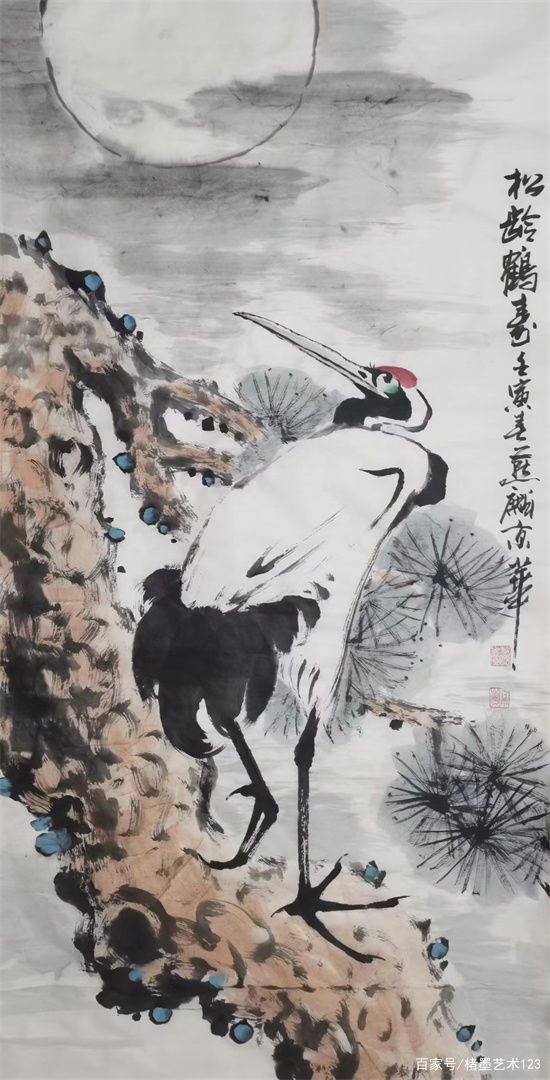 松龄鹤寿壬寅春燕麟京華
百家号/楮墨艺术123